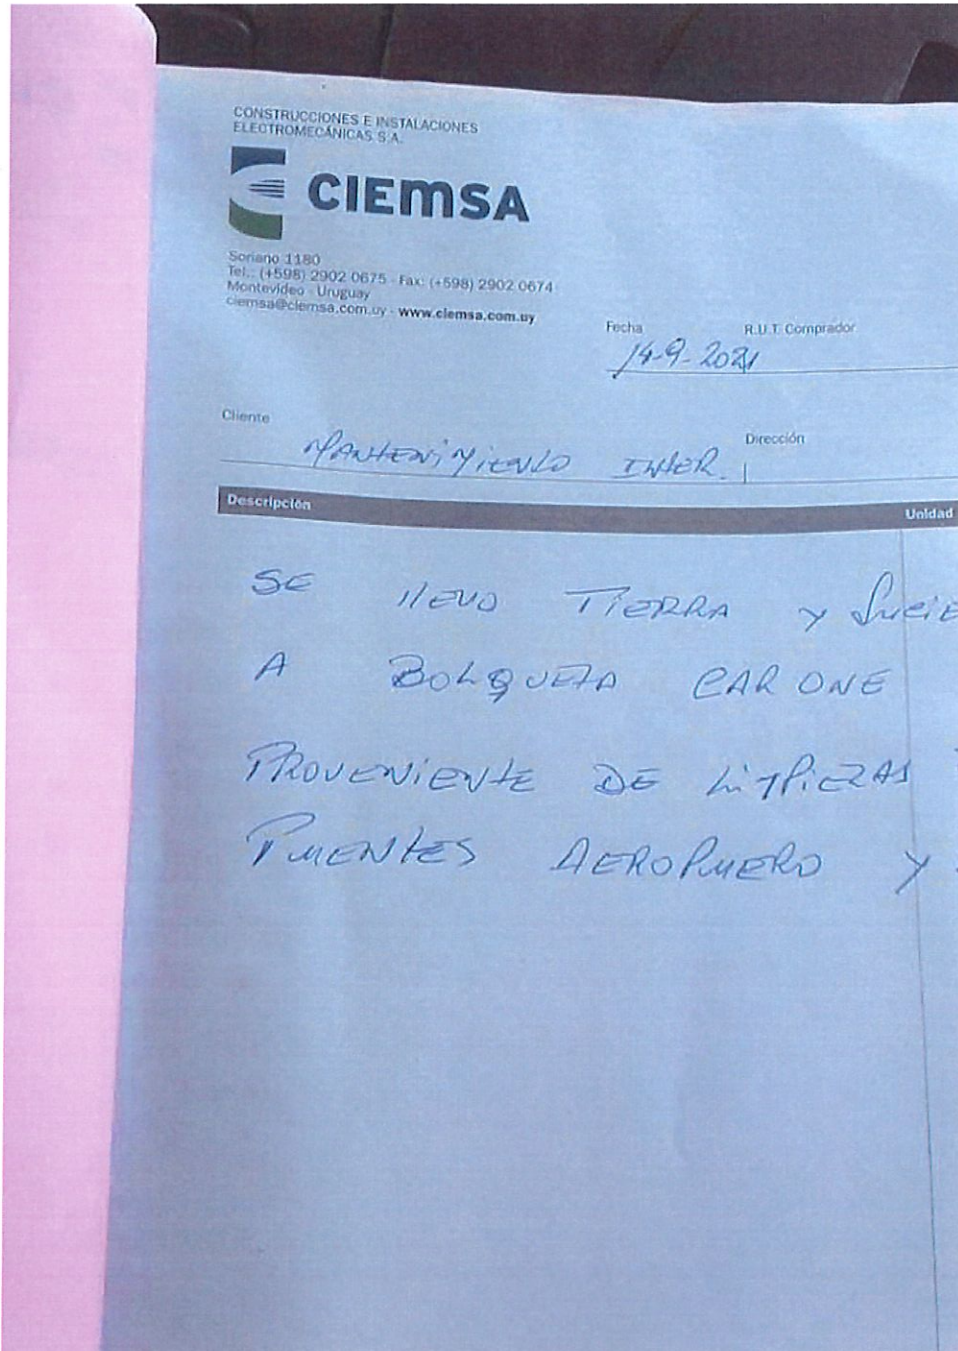 CONSTRUCCIONES E INSTALACIONES
ELECTROMECÁNICAS S.A.
CIEMSA
Soriano 1180
Tel.: (+598) 2902 0675 - Fax: (+598) 2902 0674
Montevideo - Uruguay
ciemsa@ciemsa.com.uy - www.ciemsa.com.uy
Fecha R.U.T. Comprador
14-9-2021
Cliente Dirección
MANTENiMiENTO INTER.
Descripción Unidad
SE llEVO TiERRA y SuciE
A BOLQUETA CARONE
PROVENiENTE DE LiMPiEZAS
PUENTES AEROPUERO y